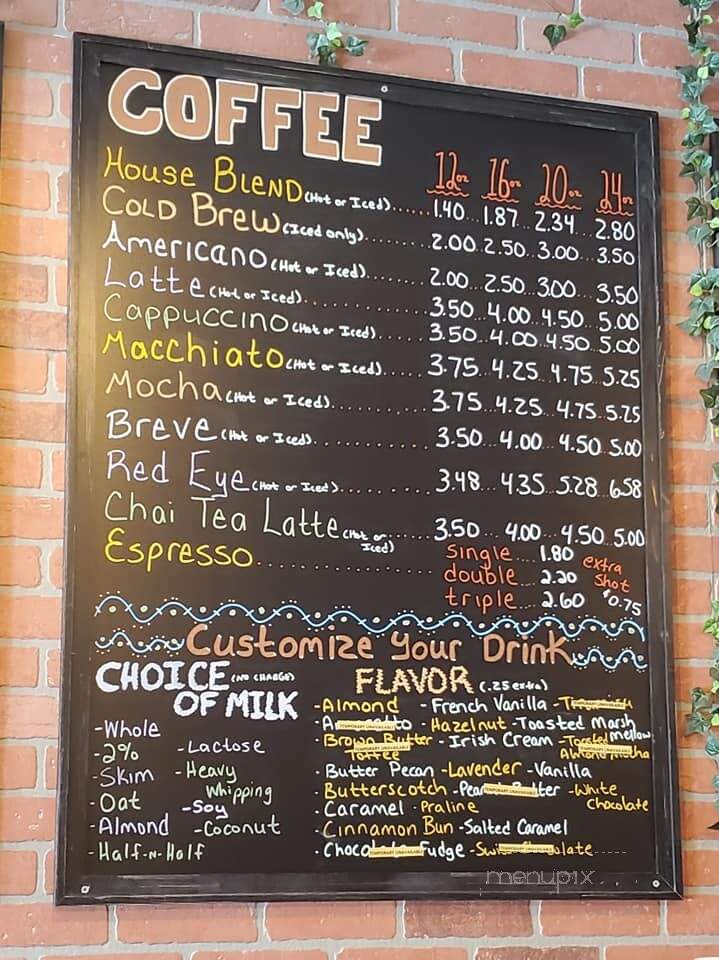 COFFEE
12oz 16oz 20oz 24oz
House Blend (Hot or Iced)...... 1.40...1.87...2.34...2.80
Cold Brew (Iced only)........ 2.00..2.50..3.00...3.50
Americano (Hot or Iced)........ 2.00...2.50..3.00...3.50
Latte (Hot or Iced).............. 3.50..4.00..4.50...5.00
Cappuccino (Hot or Iced)..... 3.50..4.00 4.50 5.00
Macchiato (Hot or Iced)..... 3.75..4.25..4.75..5.25
Mocha (Hot or Iced)............ 3.75..4.25...4.75..5.25
Breve (Hot or Iced)............. 3.50...4.00...4.50..5.00
Red Eye (Hot or Iced).......... 3.48...4.35..5.28..6.58
Chai Tea Latte (Hot or Iced)..... 3.50...4.00...4.50..5.00
Espresso.................... single.... 1.80
double... 2.20
triple.... 2.60
extra
shot
$0.75
Customize Your Drink
CHOICE (NO CHARGE)
OF MILK
-Whole
-2%
-Skim
-Oat
-Almond
-Half-N-Half
-Lactose
-Heavy
Whipping
-Soy
-Coconut
FLAVOR (.25 extra)
-Almond -French Vanilla
-Hazelnut -Toasted Marsh
mellow
Brown Butter -Irish Cream
Toffee Mocha
-Butter Pecan -Lavender -Vanilla
-Butterscotch -White
Chocolate
-Caramel -Praline
-Cinnamon Bun -Salted Caramel
Fudge
menupix